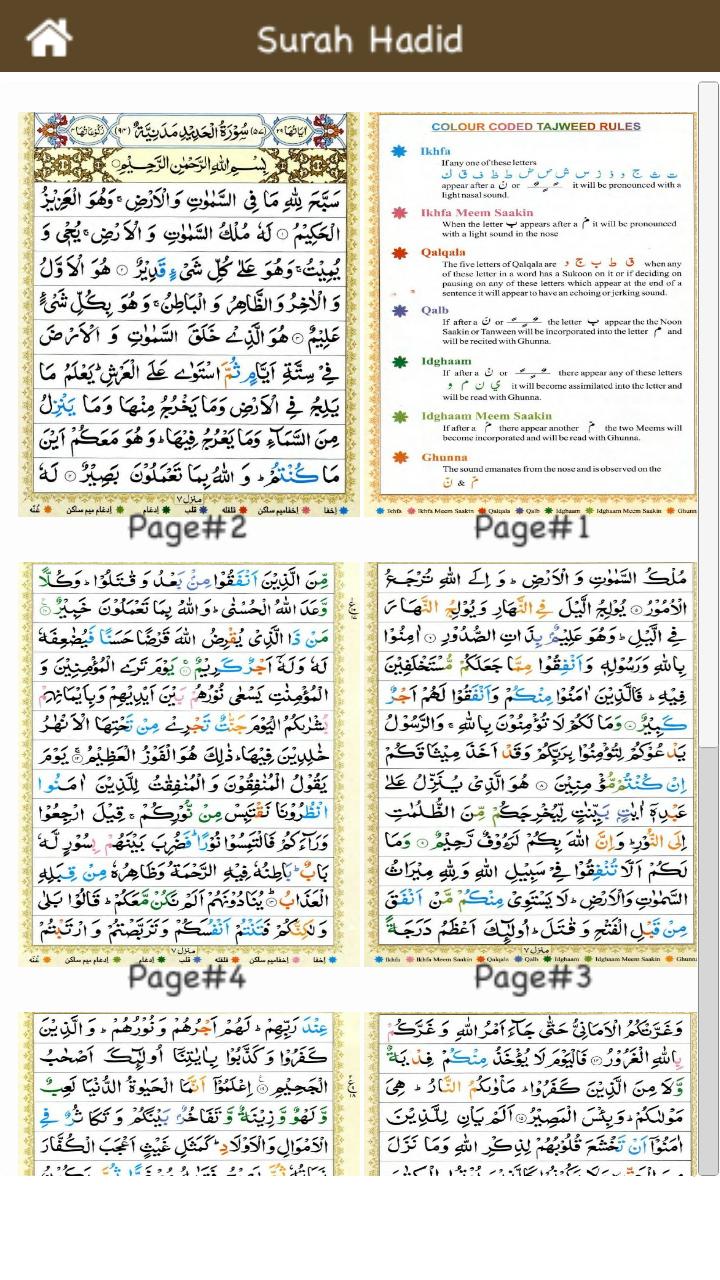 Surah Hadid
COLOUR CODED TAJWEED RULES
Ikhfa
If any one of these letters
ت ث ج د ذ ز س ش ص ض ط ظ ف ق ك
appear after a نْ or ـًـٍـٌ it will be pronounced with a
light nasal sound.
Ikhfa Meem Saakin
When the letter ب appears after a مْ it will be pronounced
with a light sound in the nose
Qalqala
The five letters of Qalqala are ق ط ب ج د when any
of these letter in a word has a Sukoon on it or if deciding on
pausing on any of these letters which appear at the end of a
sentence it will appear to have an echoing or jerking sound.
Qalb
If after a نْ or ـًـٍـٌ the letter ب appear the the Noon
Saakin or Tanween will be incorporated into the letter م and
will be recited with Ghunna.
Idghaam
If after a نْ or ـًـٍـٌ there appear any of these letters
ي ن م و it will become assimilated into the letter and
will be read with Ghunna.
Idghaam Meem Saakin
If after a مْ there appear another مْ the two Meems will
become incorporated and will be read with Ghunna.
Ghunna
The sound emanates from the nose and is observed on the
نّ & مّ
Ikhfa Ikhfa Meem Saakin Qalqala Qalb Idghaam Idghaam Meem Saakin Ghunn
Page#1
سُوْرَةُ الْحَدِيْدِ مَدَنِيَّةٌ
بِسْمِ اللّٰهِ الرَّحْمٰنِ الرَّحِيْمِ
سَبَّحَ لِلّٰهِ مَا فِى السَّمٰوٰتِ وَ الْاَرْضِ ۚ وَهُوَ الْعَزِيْزُ
الْحَكِيْمُ ۝ لَهٗ مُلْكُ السَّمٰوٰتِ وَ الْاَرْضِ ۚ يُحْيٖ وَ
يُمِيْتُ ۚ وَهُوَ عَلٰى كُلِّ شَیْءٍ قَدِيْرٌ ۝ هُوَ الْاَوَّلُ
وَ الْاٰخِرُ وَ الظَّاهِرُ وَ الْبَاطِنُ ۚ وَ هُوَ بِكُلِّ شَیْءٍ
عَلِيْمٌ ۝ هُوَ الَّذِيْ خَلَقَ السَّمٰوٰتِ وَ الْاَرْضَ
فِيْ سِتَّةِ اَيَّامٍ ثُمَّ اسْتَوٰى عَلَى الْعَرْشِ ؕ يَعْلَمُ مَا
يَلِجُ فِى الْاَرْضِ وَمَا يَخْرُجُ مِنْهَا وَمَا يَنْزِلُ
مِنَ السَّمَآءِ وَمَا يَعْرُجُ فِيْهَا ؕ وَ هُوَ مَعَكُمْ اَيْنَ
مَا كُنْتُمْ ؕ وَ اللّٰهُ بِمَا تَعْمَلُوْنَ بَصِيْرٌ ۝ لَهٗ
منزل ٧
إخفا إخفامیم ساکن قلقله قلب إدغام إدغام میم ساکن غُنّه
Page#2
مُلْكُ السَّمٰوٰتِ وَ الْاَرْضِ ؕ وَ اِلَى اللّٰهِ تُرْجَعُ
الْاُمُوْرُ ۝ يُوْلِجُ الَّيْلَ فِى النَّهَارِ وَ يُوْلِجُ النَّهَارَ
فِى الَّيْلِ ؕ وَهُوَ عَلِيْمٌۢ بِذَاتِ الصُّدُوْرِ ۝ اٰمِنُوْا
بِاللّٰهِ وَرَسُوْلِهٖ وَاَنْفِقُوْا مِمَّا جَعَلَكُمْ مُّسْتَخْلَفِيْنَ
فِيْهِ ؕ فَالَّذِيْنَ اٰمَنُوْا مِنْكُمْ وَاَنْفَقُوْا لَهُمْ اَجْرٌ
كَبِيْرٌ ۝ وَمَا لَكُمْ لَا تُؤْمِنُوْنَ بِاللّٰهِ ۚ وَالرَّسُوْلُ
يَدْعُوْكُمْ لِتُؤْمِنُوْا بِرَبِّكُمْ وَقَدْ اَخَذَ مِيْثَاقَكُمْ
اِنْ كُنْتُمْ مُّؤْمِنِيْنَ ۝ هُوَ الَّذِيْ يُنَزِّلُ عَلٰى
عَبْدِهٖٓ اٰيٰتٍۭ بَيِّنٰتٍ لِّيُخْرِجَكُمْ مِّنَ الظُّلُمٰتِ
اِلَى النُّوْرِ ؕ وَاِنَّ اللّٰهَ بِكُمْ لَرَءُوْفٌ رَّحِيْمٌ ۝ وَمَا
لَكُمْ اَلَّا تُنْفِقُوْا فِيْ سَبِيْلِ اللّٰهِ وَ لِلّٰهِ مِيْرَاثُ
السَّمٰوٰتِ وَالْاَرْضِ ؕ لَا يَسْتَوِيْ مِنْكُمْ مَّنْ اَنْفَقَ
مِنْ قَبْلِ الْفَتْحِ وَ قٰتَلَ ؕ اُولٰٓئِكَ اَعْظَمُ دَرَجَةً
منزل ٧
Ikhfa Ikhfa Meem Saakin Qalqala Qalb Idghaam Idghaam Meem Saakin Ghunna
Page#3
مِّنَ الَّذِيْنَ اَنْفَقُوْا مِنْۢ بَعْدُ وَ قٰتَلُوْا ؕ وَكُلًّا
وَّعَدَ اللّٰهُ الْحُسْنٰى ؕ وَ اللّٰهُ بِمَا تَعْمَلُوْنَ خَبِيْرٌ ۝
مَنْ ذَا الَّذِيْ يُقْرِضُ اللّٰهَ قَرْضًا حَسَنًا فَيُضٰعِفَهٗ
لَهٗ وَ لَهٗٓ اَجْرٌ كَرِيْمٌ ۝ يَوْمَ تَرَى الْمُؤْمِنِيْنَ وَ
الْمُؤْمِنٰتِ يَسْعٰى نُوْرُهُمْ بَيْنَ اَيْدِيْهِمْ وَ بِاَيْمَانِهِمْ
بُشْرٰىكُمُ الْيَوْمَ جَنّٰتٌ تَجْرِيْ مِنْ تَحْتِهَا الْاَنْهٰرُ
خٰلِدِيْنَ فِيْهَا ؕ ذٰلِكَ هُوَ الْفَوْزُ الْعَظِيْمُ ۝ يَوْمَ
يَقُوْلُ الْمُنٰفِقُوْنَ وَ الْمُنٰفِقٰتُ لِلَّذِيْنَ اٰمَنُوا
انْظُرُوْنَا نَقْتَبِسْ مِنْ نُّوْرِكُمْ ۚ قِيْلَ ارْجِعُوْا
وَرَآءَكُمْ فَالْتَمِسُوْا نُوْرًا ؕ فَضُرِبَ بَيْنَهُمْ بِسُوْرٍ لَّهٗ
بَابٌ ؕ بَاطِنُهٗ فِيْهِ الرَّحْمَةُ وَظَاهِرُهٗ مِنْ قِبَلِهِ
الْعَذَابُ ۝ يُنَادُوْنَهُمْ اَلَمْ نَكُنْ مَّعَكُمْ ؕ قَالُوْا بَلٰى
وَ لٰكِنَّكُمْ فَتَنْتُمْ اَنْفُسَكُمْ وَ تَرَبَّصْتُمْ وَ ارْتَبْتُمْ
منزل ٧
إخفا إخفامیم ساکن قلقله قلب إدغام إدغام میم ساکن غُنّه
Page#4
وَ غَرَّتْكُمُ الْاَمَانِيُّ حَتّٰى جَآءَ اَمْرُ اللّٰهِ وَ غَرَّكُمْ
بِاللّٰهِ الْغَرُوْرُ ۝ فَالْيَوْمَ لَا يُؤْخَذُ مِنْكُمْ فِدْيَةٌ
وَّلَا مِنَ الَّذِيْنَ كَفَرُوْا ؕ مَاْوٰىكُمُ النَّارُ ؕ هِيَ
مَوْلٰىكُمْ ؕ وَ بِئْسَ الْمَصِيْرُ ۝ اَلَمْ يَاْنِ لِلَّذِيْنَ
اٰمَنُوْٓا اَنْ تَخْشَعَ قُلُوْبُهُمْ لِذِكْرِ اللّٰهِ وَمَا نَزَلَ
عِنْدَ رَبِّهِمْ ؕ لَهُمْ اَجْرُهُمْ وَ نُوْرُهُمْ ؕ وَ الَّذِيْنَ
كَفَرُوْا وَ كَذَّبُوْا بِاٰيٰتِنَآ اُولٰٓئِكَ اَصْحٰبُ
الْجَحِيْمِ ۝ اِعْلَمُوْٓا اَنَّمَا الْحَيٰوةُ الدُّنْيَا لَعِبٌ
وَّ لَهْوٌ وَّ زِيْنَةٌ وَّ تَفَاخُرٌۢ بَيْنَكُمْ وَ تَكَاثُرٌ فِى
الْاَمْوَالِ وَ الْاَوْلَادِ ؕ كَمَثَلِ غَيْثٍ اَعْجَبَ الْكُفَّارَ